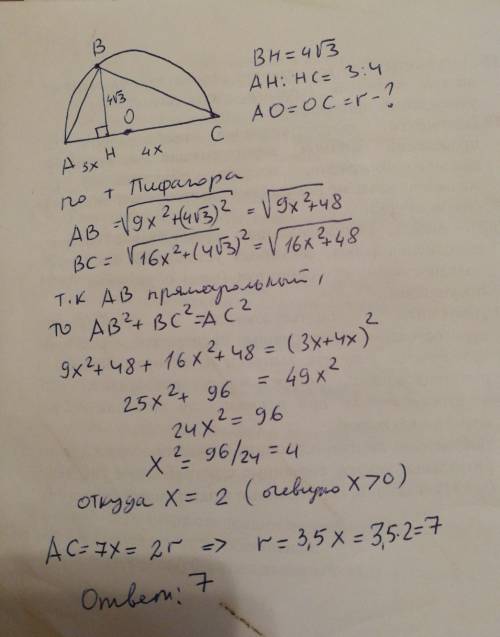 B
4√3
O
A
H
C
3x
4x
BH = 4√3
AH : HC = 3:4
AO = OC = r - ?
по т Пифагора
AB = √(9x² + (4√3)²) = √(9x² + 48)
BC = √(16x² + (4√3)²) = √(16x² + 48)
т.к AB прямоугольный,
то AB² + BC² = AC²
9x² + 48 + 16x² + 48 = (3x + 4x)²
25x² + 96 = 49x²
24x² = 96
x² = 96/24 = 4
откуда x = 2 (очевидно x > 0)
AC = 7x = 2r => r = 3,5x = 3,5·2 = 7
Ответ: 7